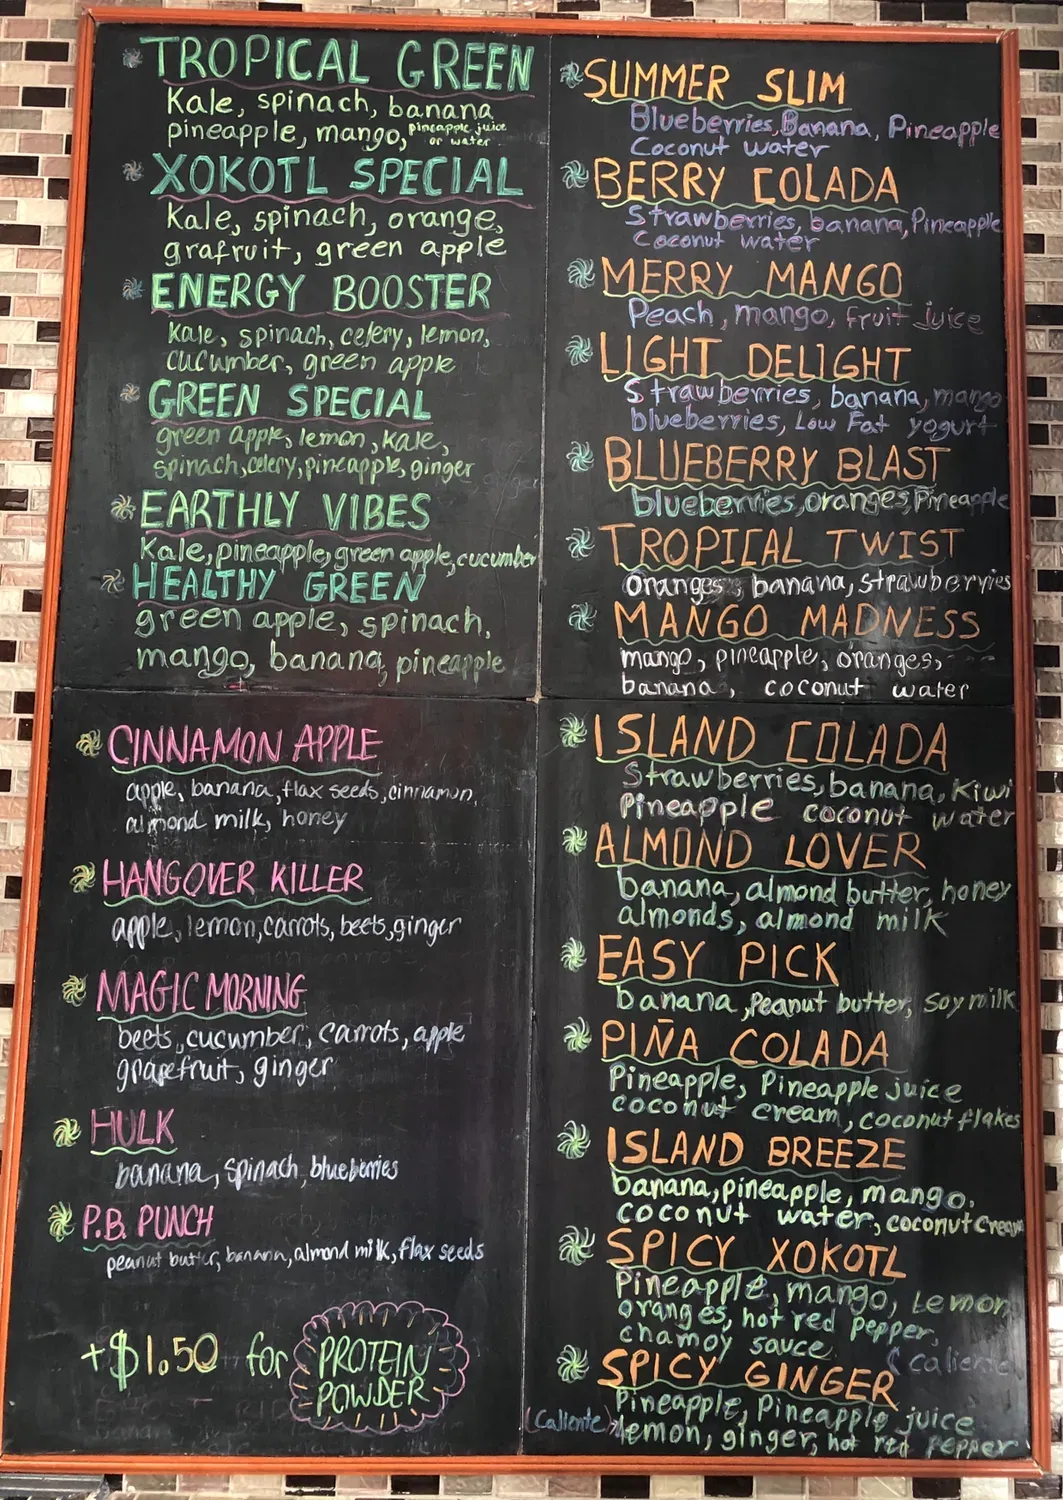 TROPICAL GREEN
Kale, spinach, banana
pineapple, mango, pineapple juice
or water
XOKOTL SPECIAL
Kale, spinach, orange,
grafruit, green apple
ENERGY BOOSTER
Kale, spinach, celery, lemon,
cucumber, green apple
GREEN SPECIAL
green apple, lemon, kale,
spinach, celery, pineapple, ginger
EARTHLY VIBES
Kale, pineapple, green apple, cucumber
HEALTHY GREEN
green apple, spinach,
mango, banana, pineapple
CINNAMON APPLE
apple, banana, flax seeds, cinnamon,
almond milk, honey
HANGOVER KILLER
apple, lemon, carrots, beets, ginger
MAGIC MORNING
beets, cucumber, carrots, apple
grapefruit, ginger
HULK
banana, spinach, blueberries
P.B. PUNCH
peanut butter, banana, almond milk, flax seeds
+$1.50 for PROTEIN
POWDER
SUMMER SLIM
Blueberries, Banana, Pineapple
Coconut water
BERRY COLADA
Strawberries, banana, Pineapple
Coconut water
MERRY MANGO
Peach, mango, fruit juice
LIGHT DELIGHT
Strawberries, banana, mango
blueberries, Low Fat yogurt
BLUEBERRY BLAST
blueberries, oranges, Pineapple
TROPICAL TWIST
Oranges, banana, strawberries
MANGO MADNESS
mango, pineapple, oranges,
banana, coconut water
ISLAND COLADA
Strawberries, banana, Kiwi
Pineapple coconut water
ALMOND LOVER
banana, almond butter, honey
almonds, almond milk
EASY PICK
banana, Peanut butter, Soy milk
PIÑA COLADA
Pineapple, Pineapple juice
coconut cream, coconut flakes
ISLAND BREEZE
banana, pineapple, mango,
coconut water, coconut cream
SPICY XOKOTL
Pineapple, mango, Lemon
oranges, hot red pepper,
chamoy sauce (caliente
SPICY GINGER
Pineapple, Pineapple juice
(Caliente) lemon, ginger, hot red pepper